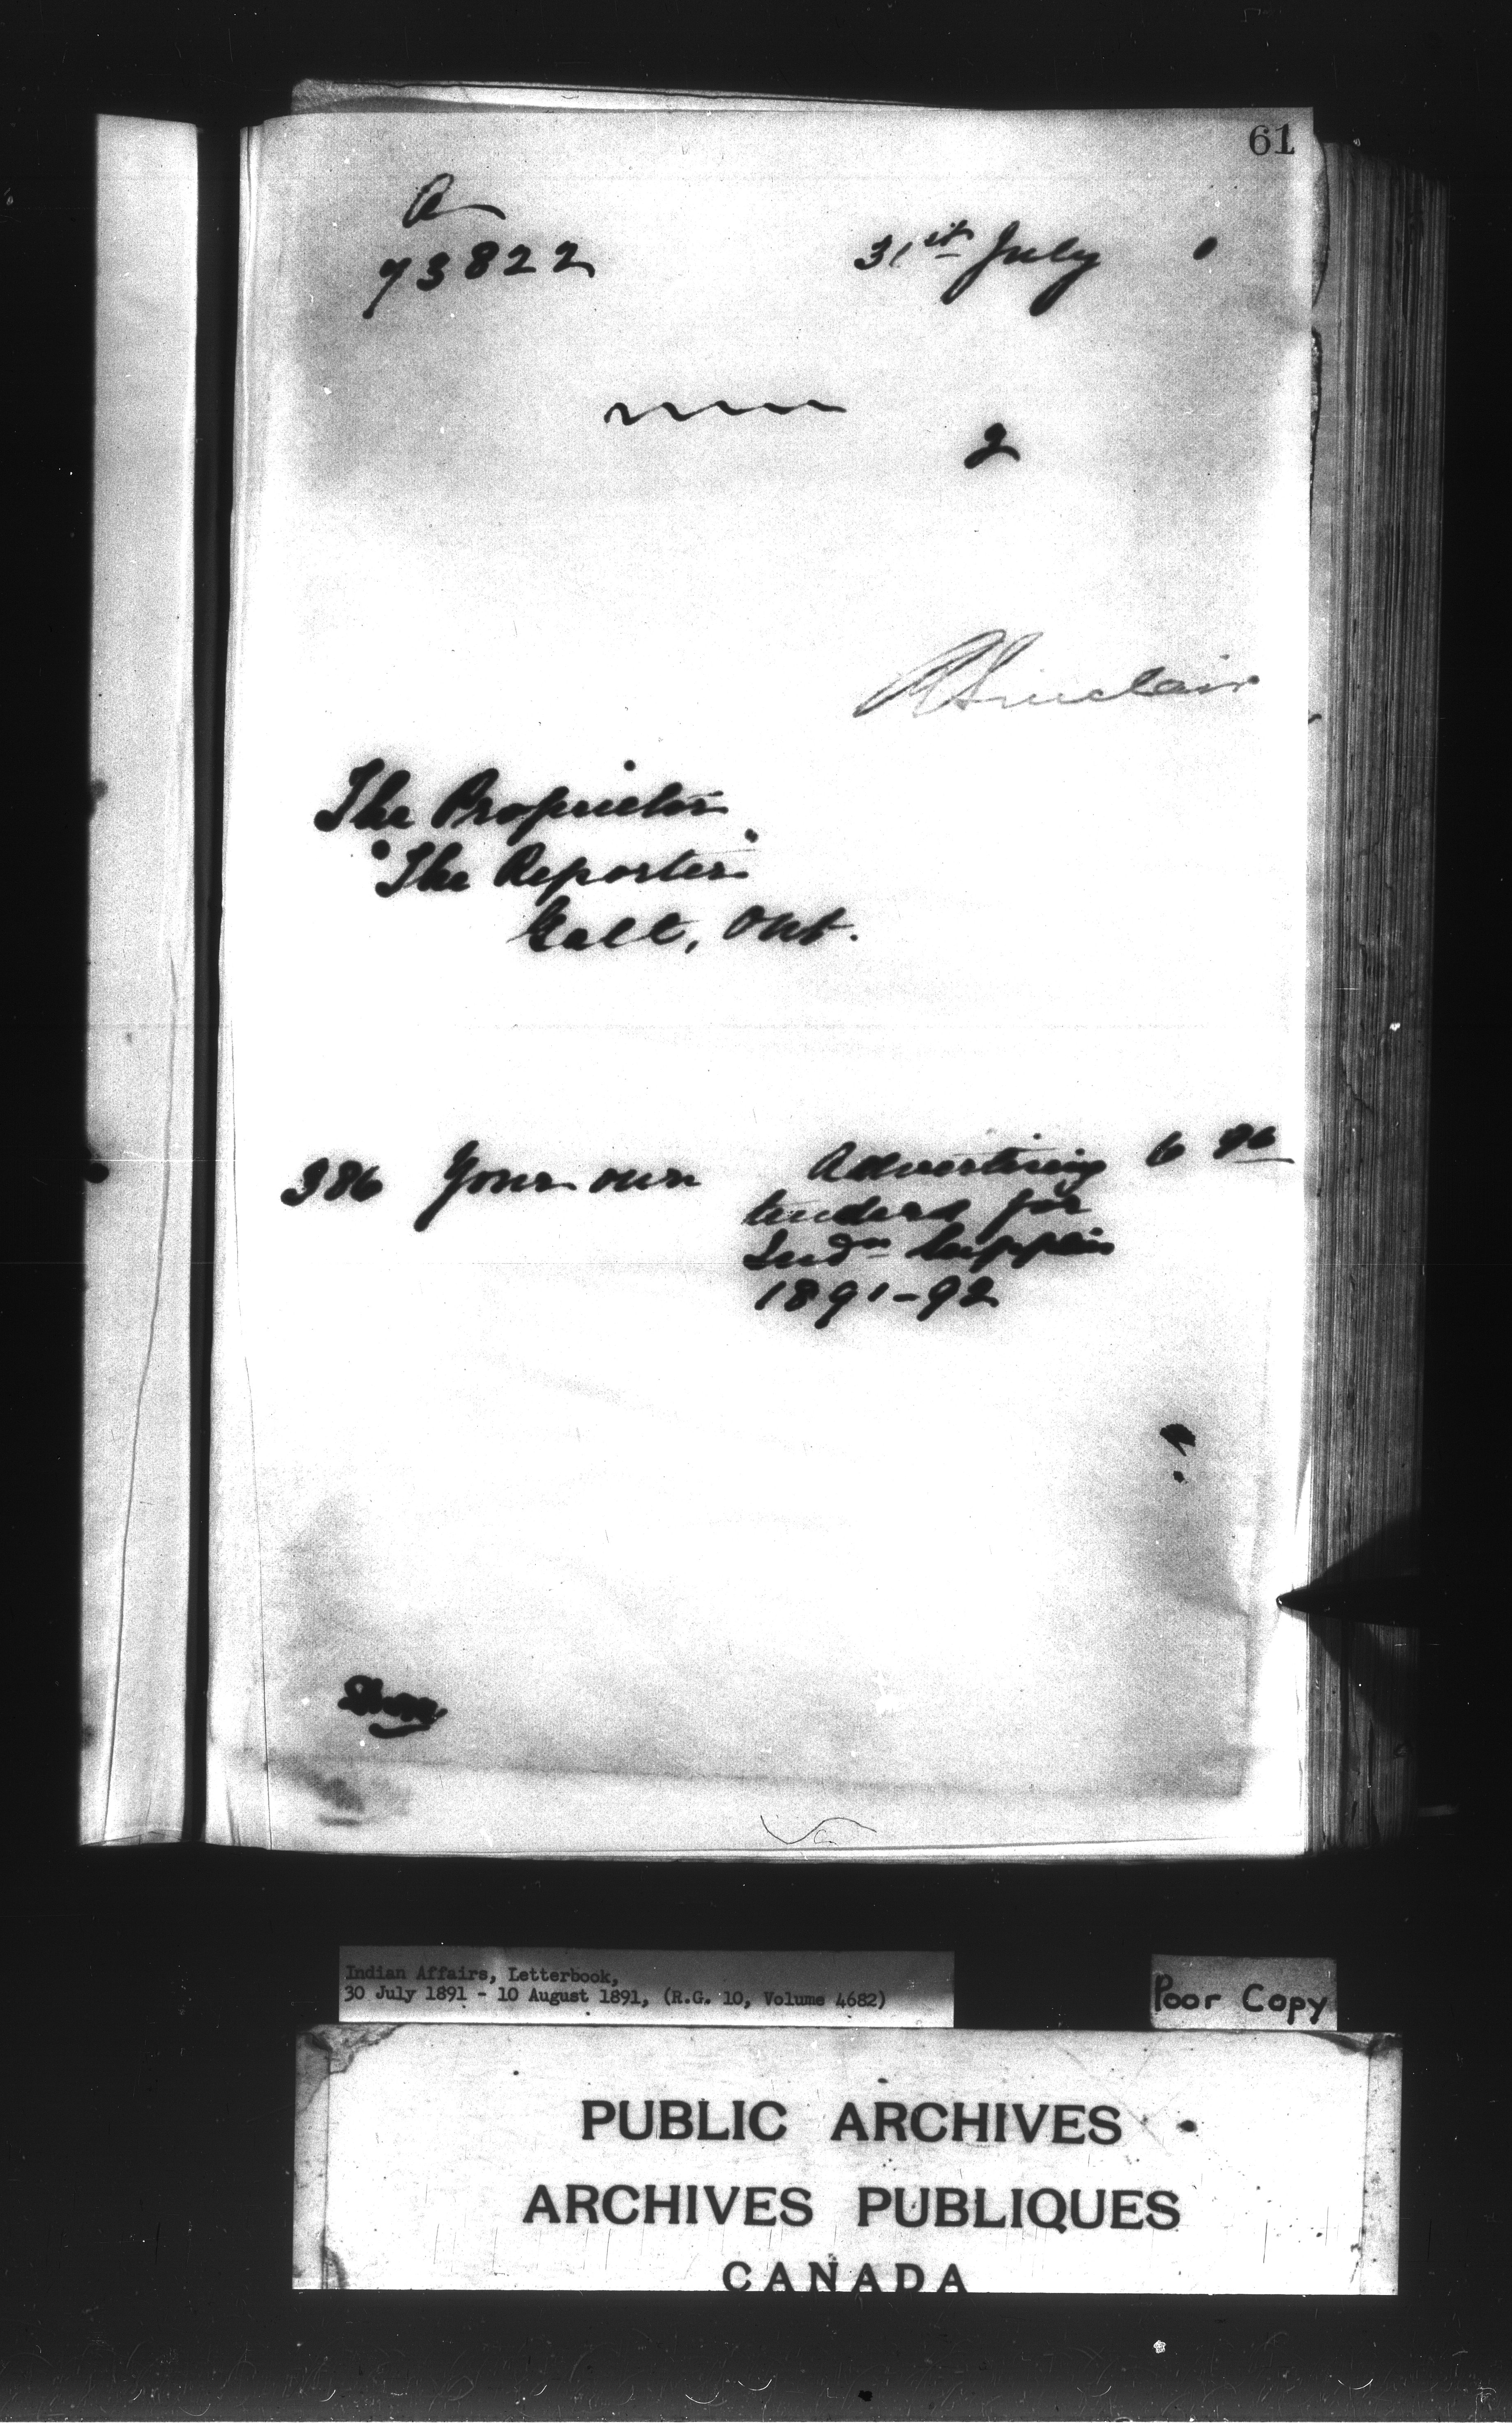 61
A
73822 31st July 1
2
R Sinclair
The Proprietor
"The Reporter"
Galt, Ont.
386 Your own Advertising 6 96
tenders for
Indn Supplies
1891-92
Indian Affairs, Letterbook,
30 July 1891 - 10 August 1891, (R.G. 10, Volume 4682)
Poor Copy
PUBLIC ARCHIVES
ARCHIVES PUBLIQUES
CANADA